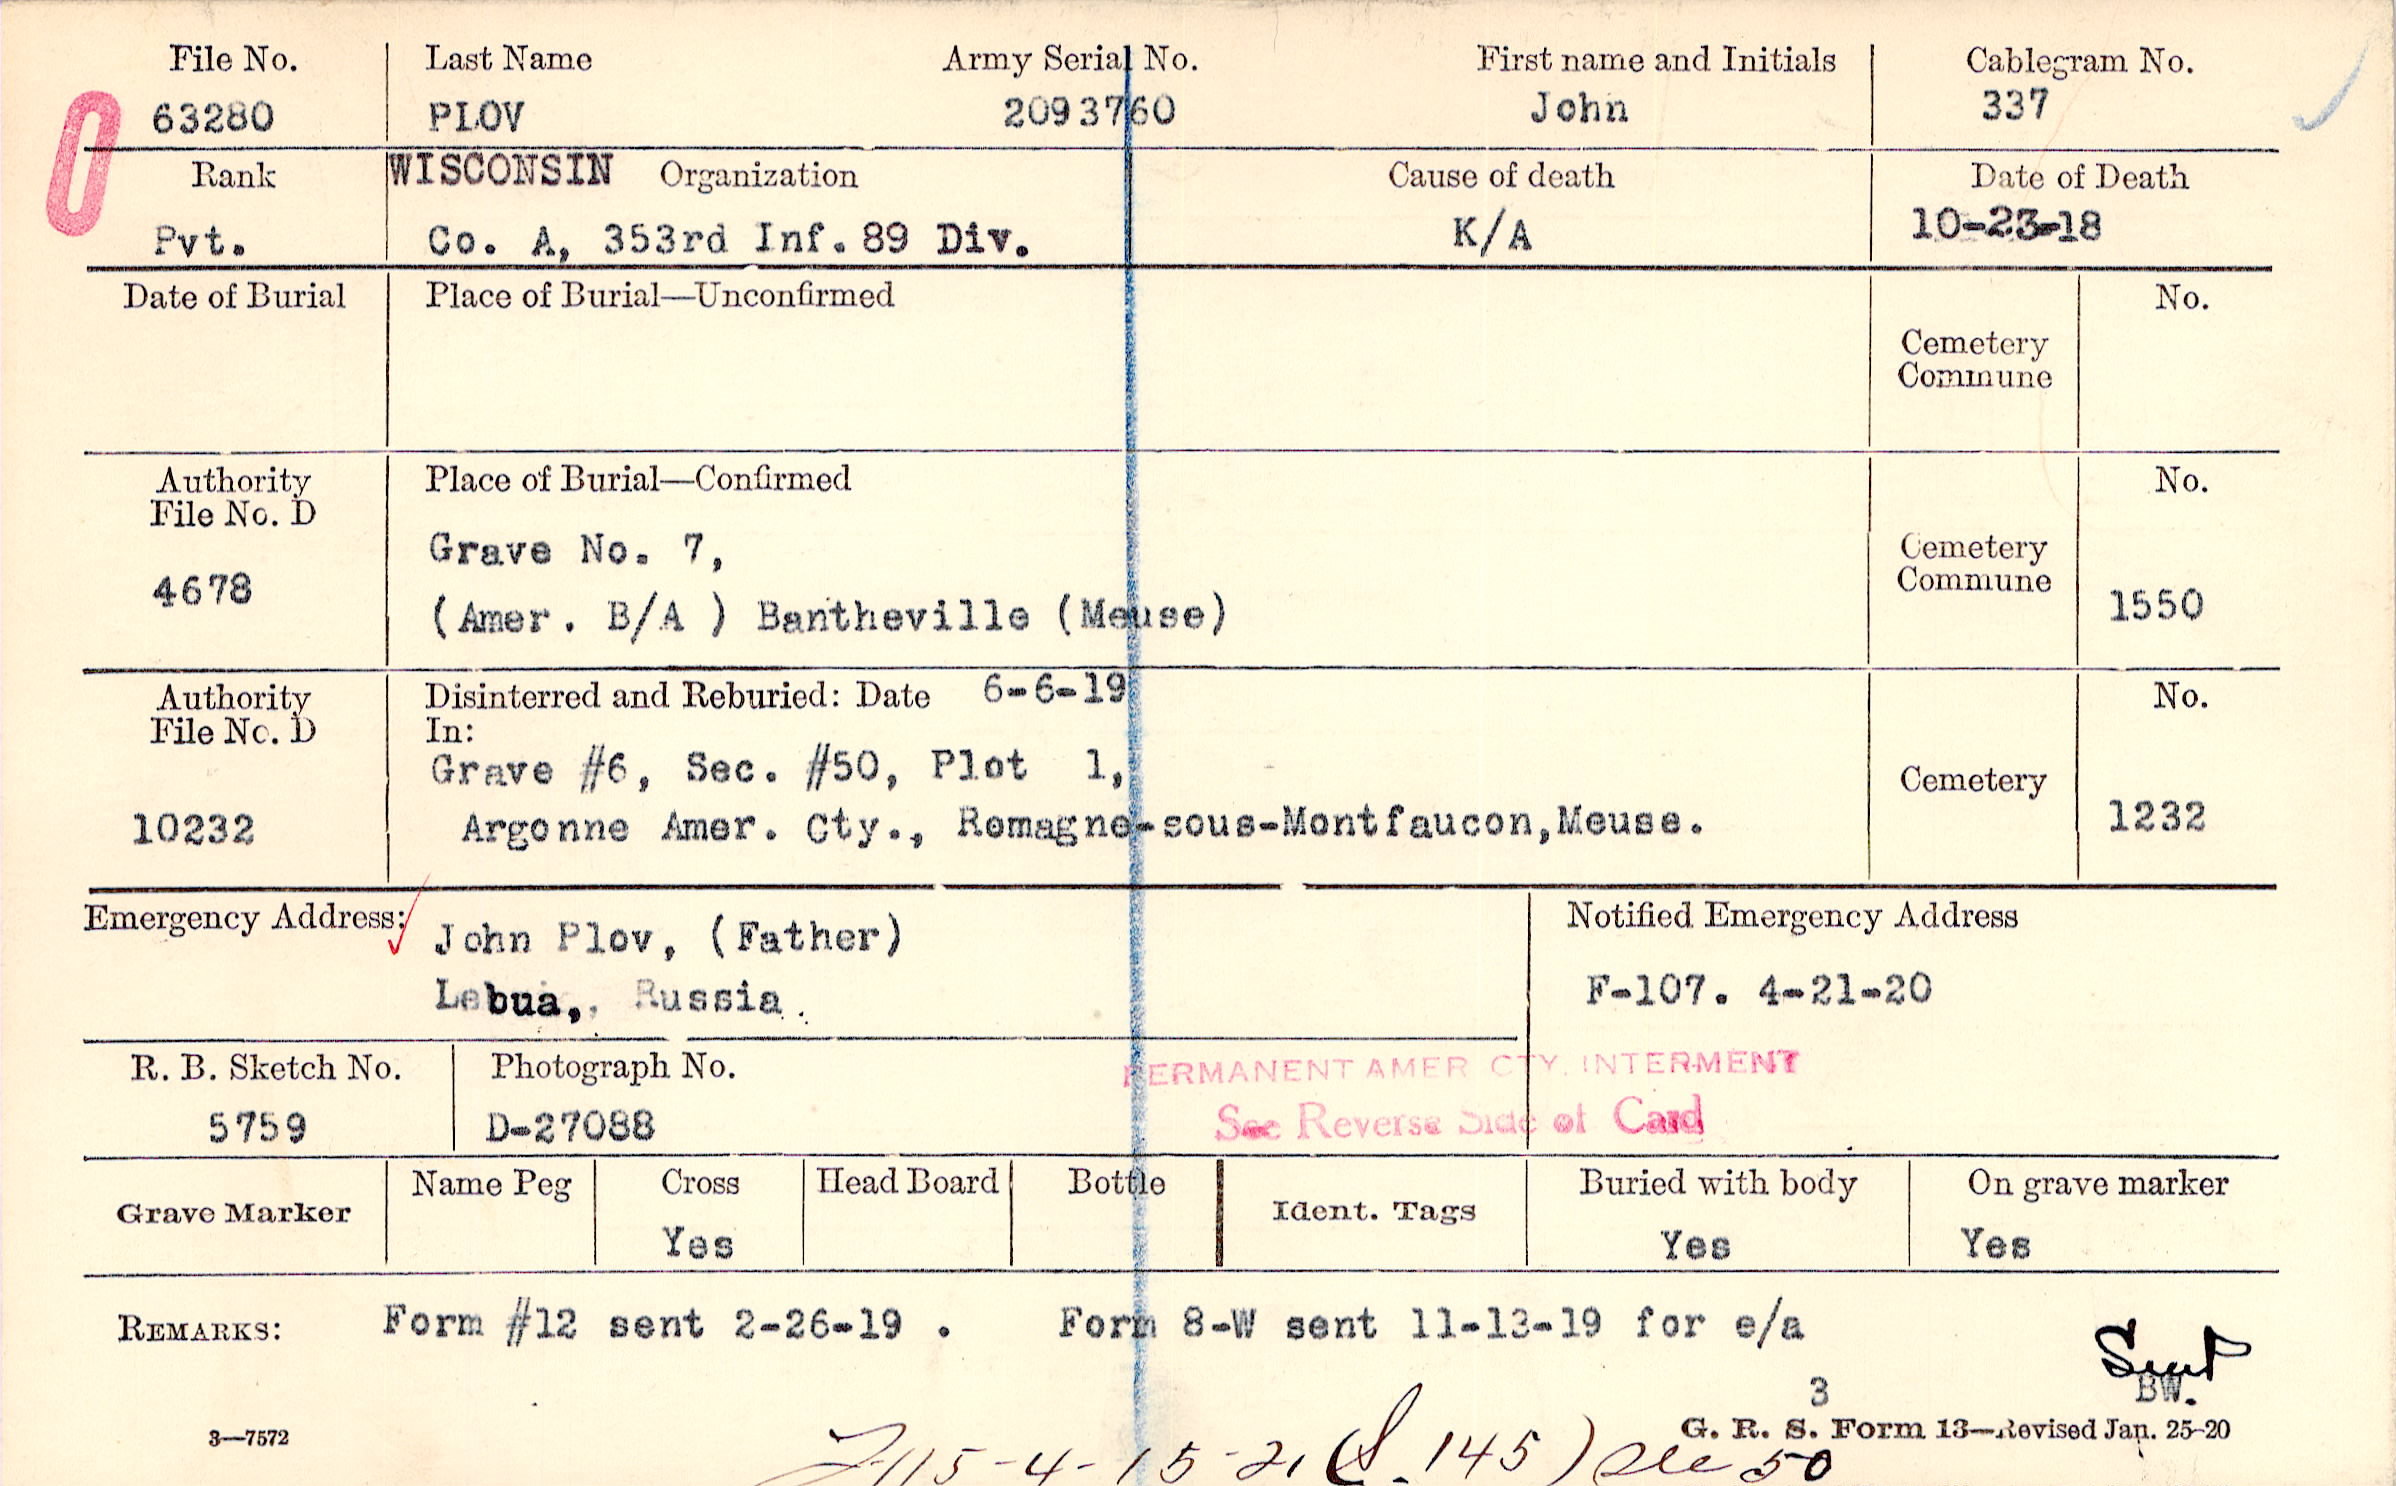 File No. Last Name Army Serial No. First name and Initials Cablegram No.
0 63280 PLOV 2093760 John 337
Rank WISCONSIN Organization Cause of death Date of Death
Pvt. Co. A, 353rd Inf. 89 Div. K/A 10-23-18
Date of Burial Place of Burial—Unconfirmed No.
Cemetery
Commune
Authority Place of Burial—Confirmed No.
File No. D
Grave No. 7, Cemetery
4678 Commune
(Amer. B/A ) Bantheville (Meuse) 1550
Authority Disinterred and Reburied: Date 6-6-19 No.
File No. D In:
Grave #6, Sec. #50, Plot 1, Cemetery
10232 Argonne Amer. Cty., Romagne-sous-Montfaucon,Meuse. 1232
Emergency Address: John Plov, (Father) Notified Emergency Address
Lebua, Russia. F-107. 4-21-20
R. B. Sketch No. Photograph No. PERMANENT AMER CTY. INTERMENT
5759 D-27088 See Reverse Side of Card
Grave Marker Name Peg Cross Head Board Bottle Ident. Tags Buried with body On grave marker
Yes Yes Yes
REMARKS: Form #12 sent 2-26-19 . Form 8-W sent 11-13-19 for e/a
Sent
3 BW.
3—7572 G. R. S. Form 13—Revised Jan. 25-20
115-4-15-21 (S. 145) see 50